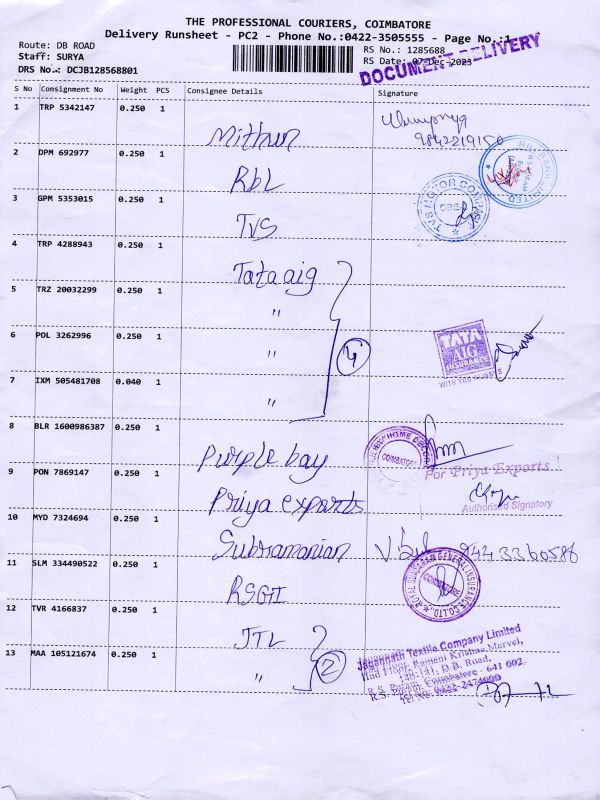 THE PROFESSIONAL COURIERS, COIMBATORE
Delivery Runsheet - PC2 - Phone No.:0422-3505555 - Page No.:1
Route: DB ROAD
RS No.: 1285688
Staff: SURYA
RS Date: 07-Dec-2023
DRS No.: DCJB128568801
DOCUMENT DELIVERY
S No Consignment No Weight PCS Consignee Details Signature
1 TRP 5342147 0.250 1
Mithun
9842219150
2 DPM 692977 0.250 1
RbL
3 GPM 5353015 0.250 1
TVS
TVS MOTOR COMPANY
CBE
4 TRP 4288943 0.250 1
Tata aig
5 TRZ 20032299 0.250 1
"
6 POL 3262996 0.250 1
"
4
TATA
AIG
INSURANCE
WITH YOU ALWAYS
7 IXM 505481708 0.040 1
"
8 BLR 1600986387 0.250 1
Purple bay
COIMBATORE
9 PON 7869147 0.250 1
Priya exports
For Priya Exports
Authorised Signatory
10 MYD 7324694 0.250 1
Subramanian
9443360586
11 SLM 334490522 0.250 1
RSGII
ROYAL SUNDARAM GENERAL INSURANCE CO. LTD.
COIMBATORE
12 TVR 4166837 0.250 1
JTL
2
13 MAA 105121674 0.250 1
"
Jagannath Textile Company Limited
IInd Floor, Ramani Krishna Marvel,
D.B. Road,
R.S. Puram, Coimbatore - 641 002.
Tel No. 0422-2474000